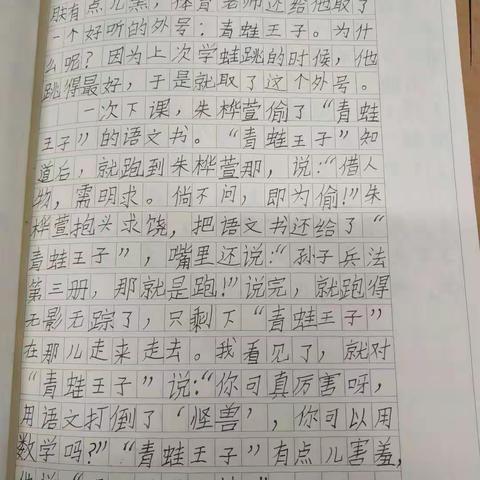 肤有点儿黑，体育老师还给他取了
一个好听的外号：青蛙王子。为什
么呢？因为上次学蛙跳的时候，他
跳得最好，于是就取了这个外号。
一次下课，朱桦萱偷了“青蛙
王子”的语文书。“青蛙王子”知
道后，就跑到朱桦萱那，说：“借人
物，需明求。倘不问，即为偷！”朱
桦萱抱头求饶，把语文书还给了“
青蛙王子”，嘴里还说：“孙子兵法
第三册，那就是跑！”说完，就跑得
无影无踪了，只剩下“青蛙王子”
在那儿走来走去。我看见了，就对
“青蛙王子”说：“你可真厉害呀，
用语文打倒了‘怪兽’，你可以用
数学吗？”“青蛙王子”有点儿害羞，